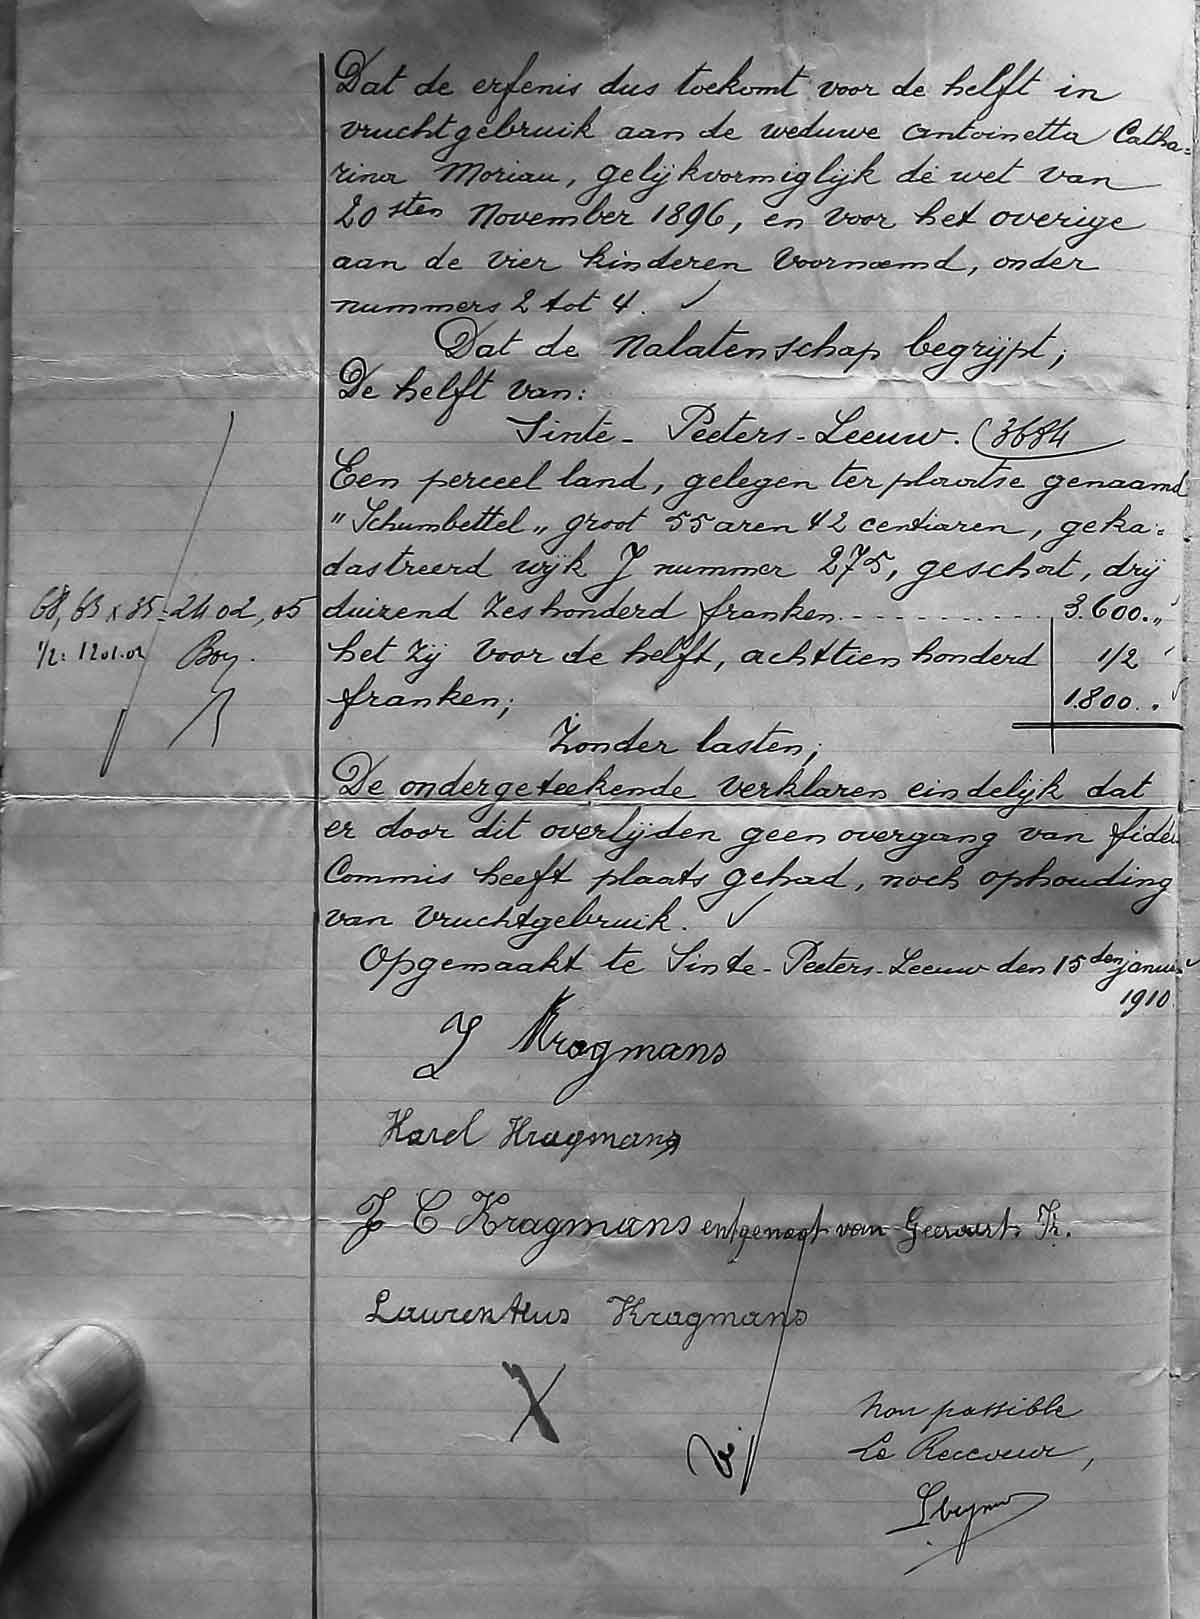 Dat de erfenis dus toekomt voor de helft in
vruchtgebruik aan de weduwe Antoinetta Catha=
rina Moriau, gelijkvormiglijk de wet van
20sten November 1896, en voor het overige
aan de vier kinderen voornoemd, onder
nummers 2 tot 4.
Dat de Nalatenschap begrijpt;
De helft van:
Sinte-Peeters-Leeuw. (3684
Een perceel land, gelegen ter plaatse genaamd
"Schumbettel" groot 55 aren 42 centiaren, geka=
dastreerd wijk J nummer 275, geschat, drij
68,63 x 35 = 2402,05 duizend zeshonderd franken.......... 3.600.,,
1/2: 1201.02 Boy. het zij voor de helft, achttien honderd 1/2
franken; 1.800.,,
Zonder lasten;
De ondergeteekende verklaren eindelijk dat
er door dit overlijden geen overgang van fidei
Commis heeft plaats gehad, noch ophouding
van vruchtgebruik.
Opgemaakt te Sinte-Peeters-Leeuw den 15den januari
1910.
J Kragmans
Karel Kragmans
J C Kragmans entgenoot van Geeraert. Fr.
Laurentius Kragmans
X
Non passible
Le Receveur,